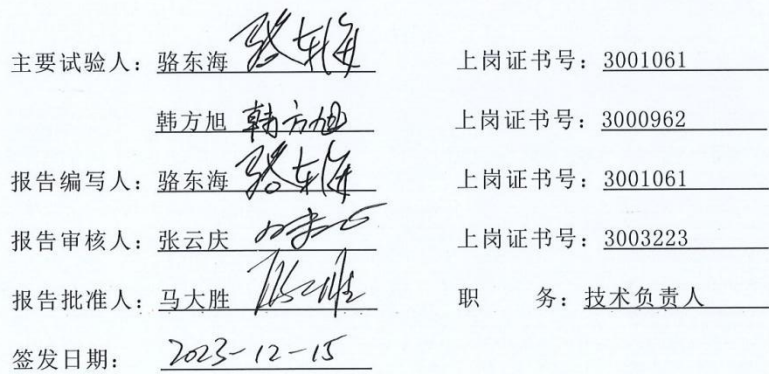 主要试验人：骆东海 骆东海 上岗证书号：3001061
韩方旭 韩方旭 上岗证书号：3000962
报告编写人：骆东海 骆东海 上岗证书号：3001061
报告审核人：张云庆 上岗证书号：3003223
报告批准人：马大胜 职 务：技术负责人
签发日期： 2023-12-15